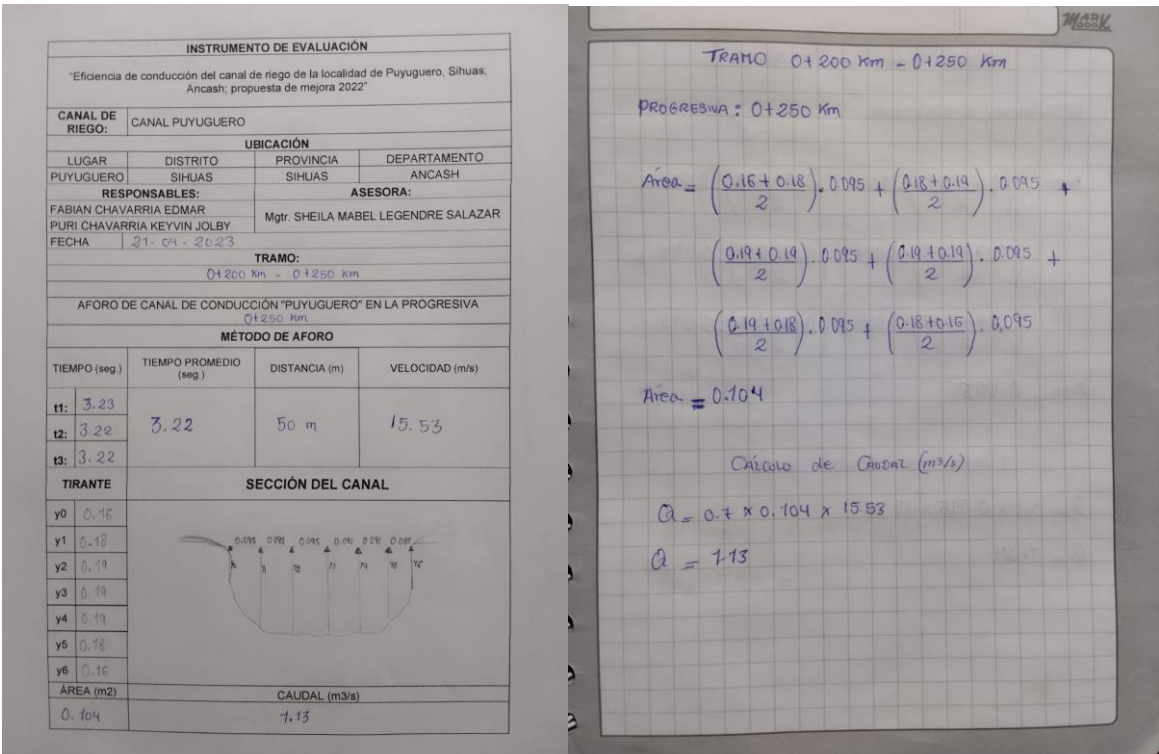 INSTRUMENTO DE EVALUACIÓN
"Eficiencia de conducción del canal de riego de la localidad de Puyuguero, Sihuas;
Ancash; propuesta de mejora 2022"
CANAL DE RIEGO: CANAL PUYUGUERO
UBICACIÓN
LUGAR DISTRITO PROVINCIA DEPARTAMENTO
PUYUGUERO SIHUAS SIHUAS ANCASH
RESPONSABLES: ASESORA:
FABIAN CHAVARRIA EDMAR
PURI CHAVARRIA KEYVIN JOLBY
Mgtr. SHEILA MABEL LEGENDRE SALAZAR
FECHA 21-04-2023
TRAMO:
0+200 Km - 0+250 Km
AFORO DE CANAL DE CONDUCCIÓN "PUYUGUERO" EN LA PROGRESIVA
0+250 Km
MÉTODO DE AFORO
TIEMPO (seg.) TIEMPO PROMEDIO (seg.) DISTANCIA (m) VELOCIDAD (m/s)
t1: 3.23
t2: 3.22
t3: 3.22
3.22 50 m 15.53
TIRANTE SECCIÓN DEL CANAL
y0 0.16
y1 0.18
y2 0.19
y3 0.19
y4 0.19
y5 0.18
y6 0.16
0.095 0.095 0.095
ÁREA (m2) CAUDAL (m3/s)
0.104 1.13
MARK
TRAMO 0+200 Km - 0+250 Km
PROGRESIVA: 0+250 Km
Área = (0.16+0.18/2). 0.095 + (0.18+0.19/2). 0.095 +
(0.19+0.19/2). 0.095 + (0.19+0.19/2). 0.095 +
(0.19+0.18/2). 0.095 + (0.18+0.16/2). 0.095
Área = 0.104
Cálculo de Caudal (m3/s)
Q = 0.7 x 0.104 x 15.53
Q = 1.13